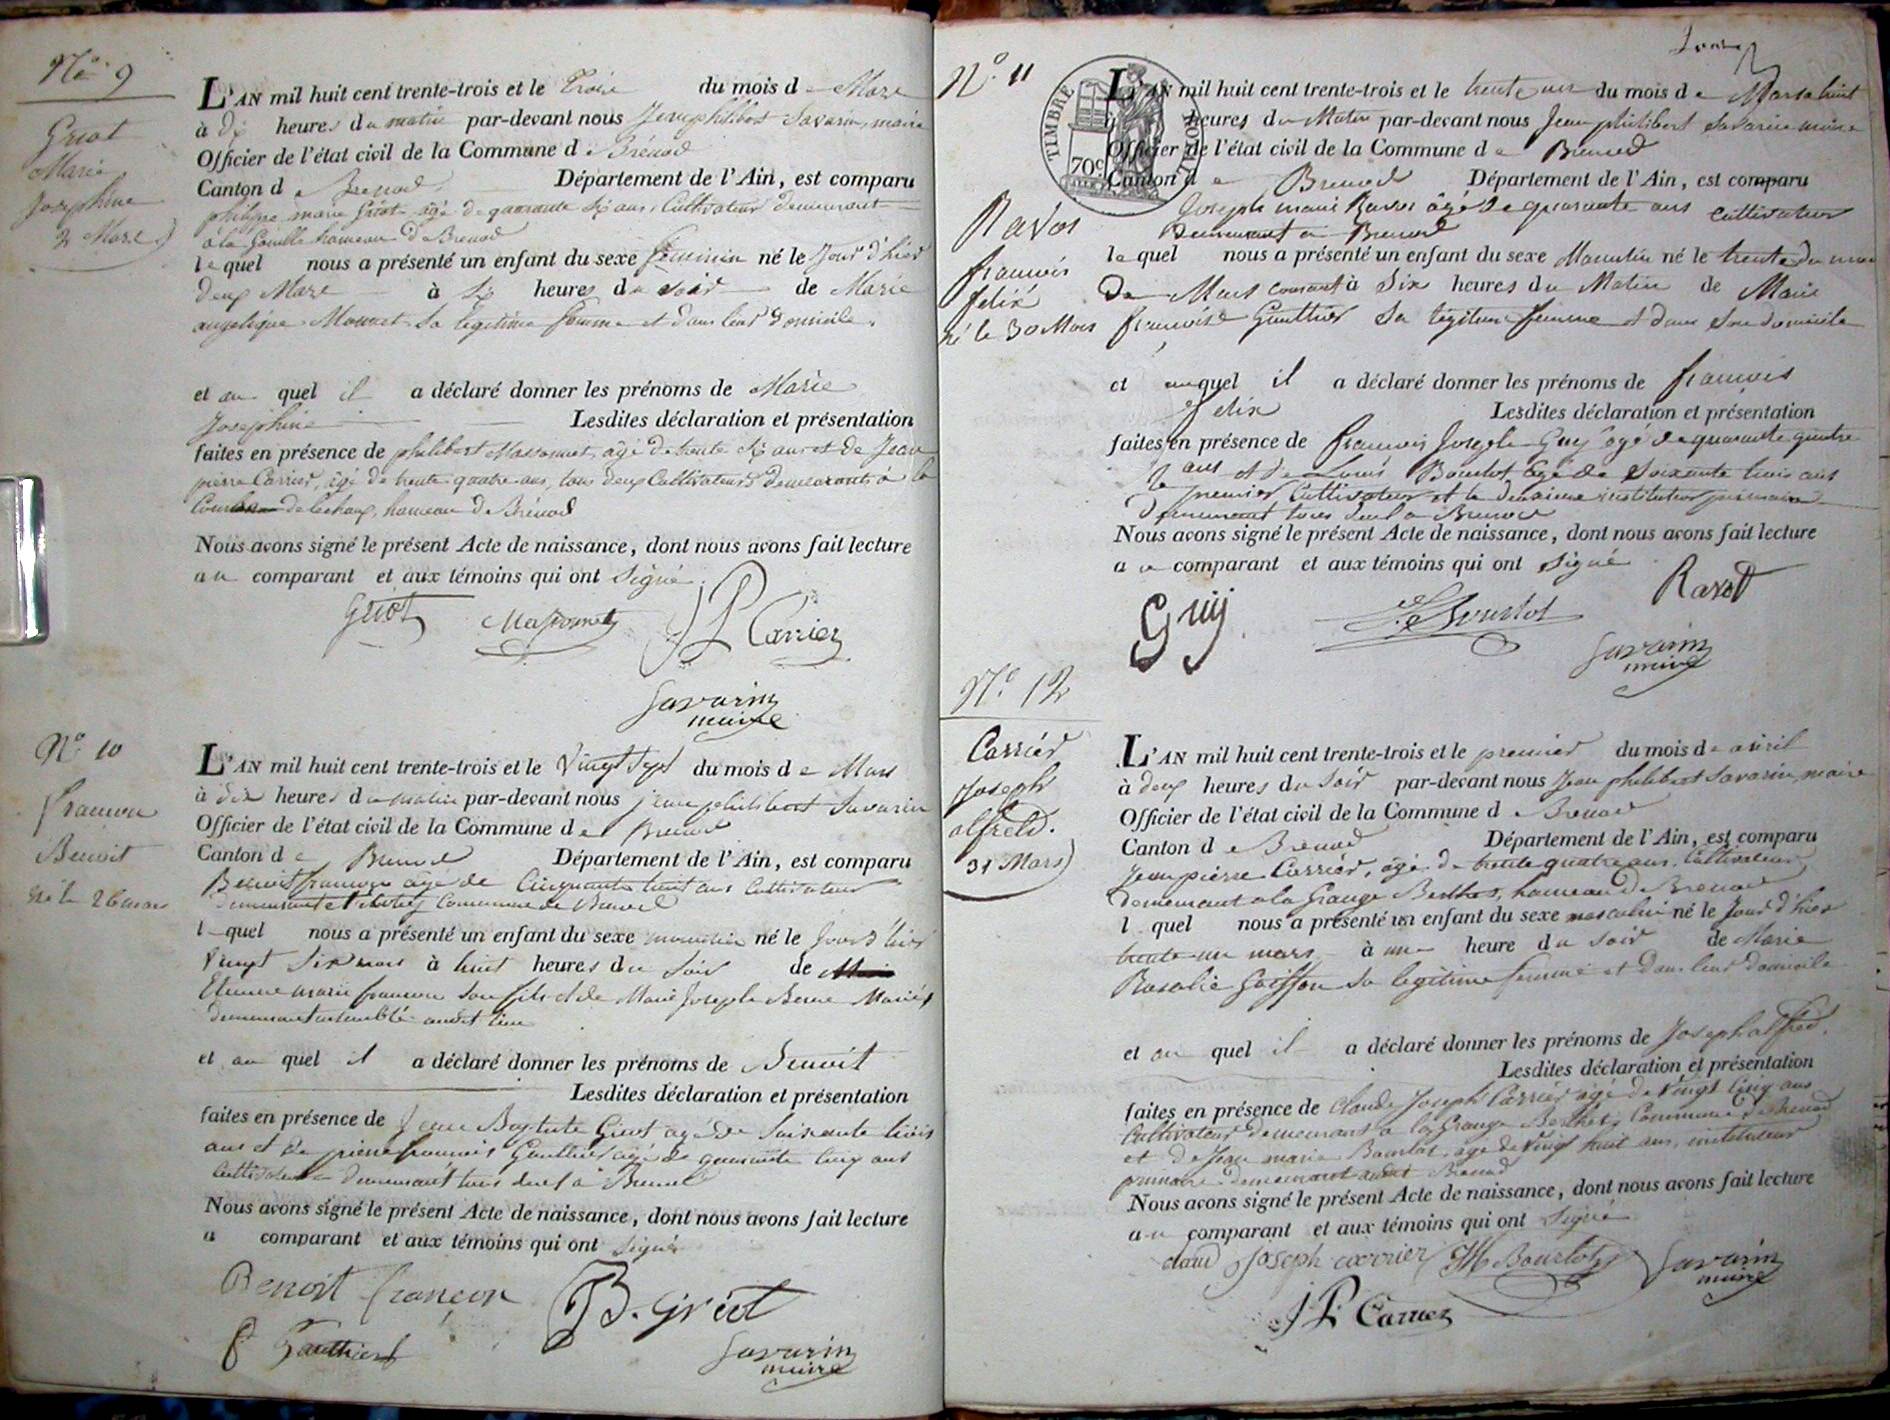 N° 9
Griot
Marie
Josephine
2 Mars
L'AN mil huit cent trente-trois et le Trois du mois de Mars
à dix heures du matin par-devant nous Jean philibert Savarin, maire
Officier de l'état civil de la Commune de Brénod
Canton de Brenod Département de l'Ain, est comparu
philippe marie Griot âgé de quarante six ans, Cultivateur demeurant
à la Gouille hameau de Brenod
lequel nous a présenté un enfant du sexe féminin né le Jour d'hier
deux Mars à six heures du soir de Marie
angelique Monnet sa legitime femme et dans leur domicile.
et au quel il a déclaré donner les prénoms de Marie
Josephine Lesdites déclaration et présentation
faites en présence de philibert Massonnet, âgé de trente six ans et de Jean
pierre Carrier, âgé de trente quatre ans, tous deux Cultivateurs demeurants à la
de Lechaux, hameau de Brénod
Nous avons signé le présent Acte de naissance, dont nous avons fait lecture
au comparant et aux témoins qui ont signé.
Griot Massonnet JP Carrier
Savarin
maire
N° 10
françon
Benoit
né le 26 mars
L'AN mil huit cent trente-trois et le Vingt sept du mois de Mars
à dix heures du matin par-devant nous jean philibert Savarin
Officier de l'état civil de la Commune de Brenod
Canton de Brenod Département de l'Ain, est comparu
Benoit françon âgé de Cinquante huit ans Cultivateur
demeurant Commune de Brenod
lequel nous a présenté un enfant du sexe masculin né le Jour d'hier
Vingt Six mars à huit heures du Soir de
Etienne marie françon son fils et de Marie Josephe Berne Mariés
demeurant ensemble audit lieu
et au quel il a déclaré donner les prénoms de Benoit
Lesdites déclaration et présentation
faites en présence de Jean Baptiste Griot agé de Soixante trois
ans et de pierre françois Gauthier âgé de quarante cinq ans
Cultivateurs demeurant tous deux à Brenod
Nous avons signé le présent Acte de naissance, dont nous avons fait lecture
a comparant et aux témoins qui ont signés
Benoit françon JB. Griot
Gauthier Savarin
maire
N° 11
TIMBRE ROYAL
70c
Ravot
françois
felix
né le 30 Mars
L'AN mil huit cent trente-trois et le trente un du mois de Mars a huit
heures du Matin par-devant nous Jean philibert Savarin maire
Officier de l'état civil de la Commune de Brenod
Canton de Brenod Département de l'Ain, est comparu
Joseph marie Ravot âgé de quarante ans cultivateur
demeurant a Brenod
lequel nous a présenté un enfant du sexe Masculin né le trente du mois
de Mars courant à Six heures du Matin de Marie
françoise Gauthier sa légitime femme et dans son domicile
et auquel il a déclaré donner les prénoms de françois
felix Lesdites déclaration et présentation
faites en présence de francois Joseph Guy âgé de quarante quatre
ans et de Louis Bourlot âgé de Soixante trois ans
le premier Cultivateur et le deuxieme instituteur primaire
demeurant tous deux a Brenod
Nous avons signé le présent Acte de naissance, dont nous avons fait lecture
au comparant et aux témoins qui ont signé
Guy Bourlot Ravot
Savarin
maire
N° 12
Carrier
Joseph
alfred.
31 Mars
L'AN mil huit cent trente-trois et le premier du mois de avril
à deux heures du soir par-devant nous Jean philibert Savarin, maire
Officier de l'état civil de la Commune de Brenod
Canton de Brenod Département de l'Ain, est comparu
Jean pierre Carrier, âgé de trente quatre ans, Cultivateur
demeurant a la Grange Berthet, hameau de Brenod
l quel nous a présenté un enfant du sexe masculin né le Jour d'hier
trente un mars à une heure du soir de Marie
Rosalie Goiffon sa legitime femme et dans leur domicile
et au quel il a déclaré donner les prénoms de Joseph alfred.
Lesdites déclaration et présentation
faites en présence de Claude Joseph Carrier âgé de vingt Cinq ans
Cultivateur demeurant a la Grange Berthet, Commune de Brenod
et de Jean marie Bourlot, âgé de vingt huit ans, instituteur
primaire demeurant audit Brenod
Nous avons signé le présent Acte de naissance, dont nous avons fait lecture
au comparant et aux témoins qui ont signé
claud joseph carrier JM Bourlot Savarin
maire
JP Carrier